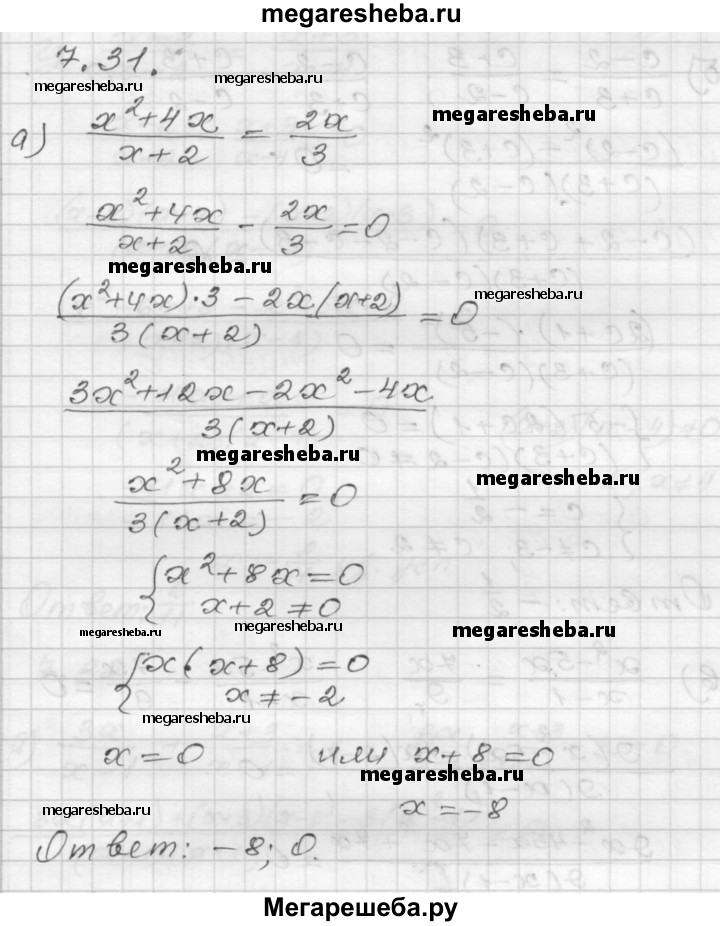 megaresheba.ru
7.31.
megaresheba.ru megaresheba.ru
а) (x²+4x)/(x+2) = 2x/3 megaresheba.ru
(x²+4x)/(x+2) - 2x/3 = 0
megaresheba.ru
((x²+4x)·3 - 2x(x+2))/(3(x+2)) = 0 megaresheba.ru
(3x²+12x-2x²-4x)/(3(x+2))
megaresheba.ru
(x²+8x)/(3(x+2)) = 0 megaresheba.ru
{x²+8x=0
x+2≠0
megaresheba.ru megaresheba.ru megaresheba.ru
{x·(x+8)=0
x≠-2
megaresheba.ru
x=0 или x+8=0
megaresheba.ru
megaresheba.ru x=-8
Ответ: -8; 0.
Мегарешеба.ру